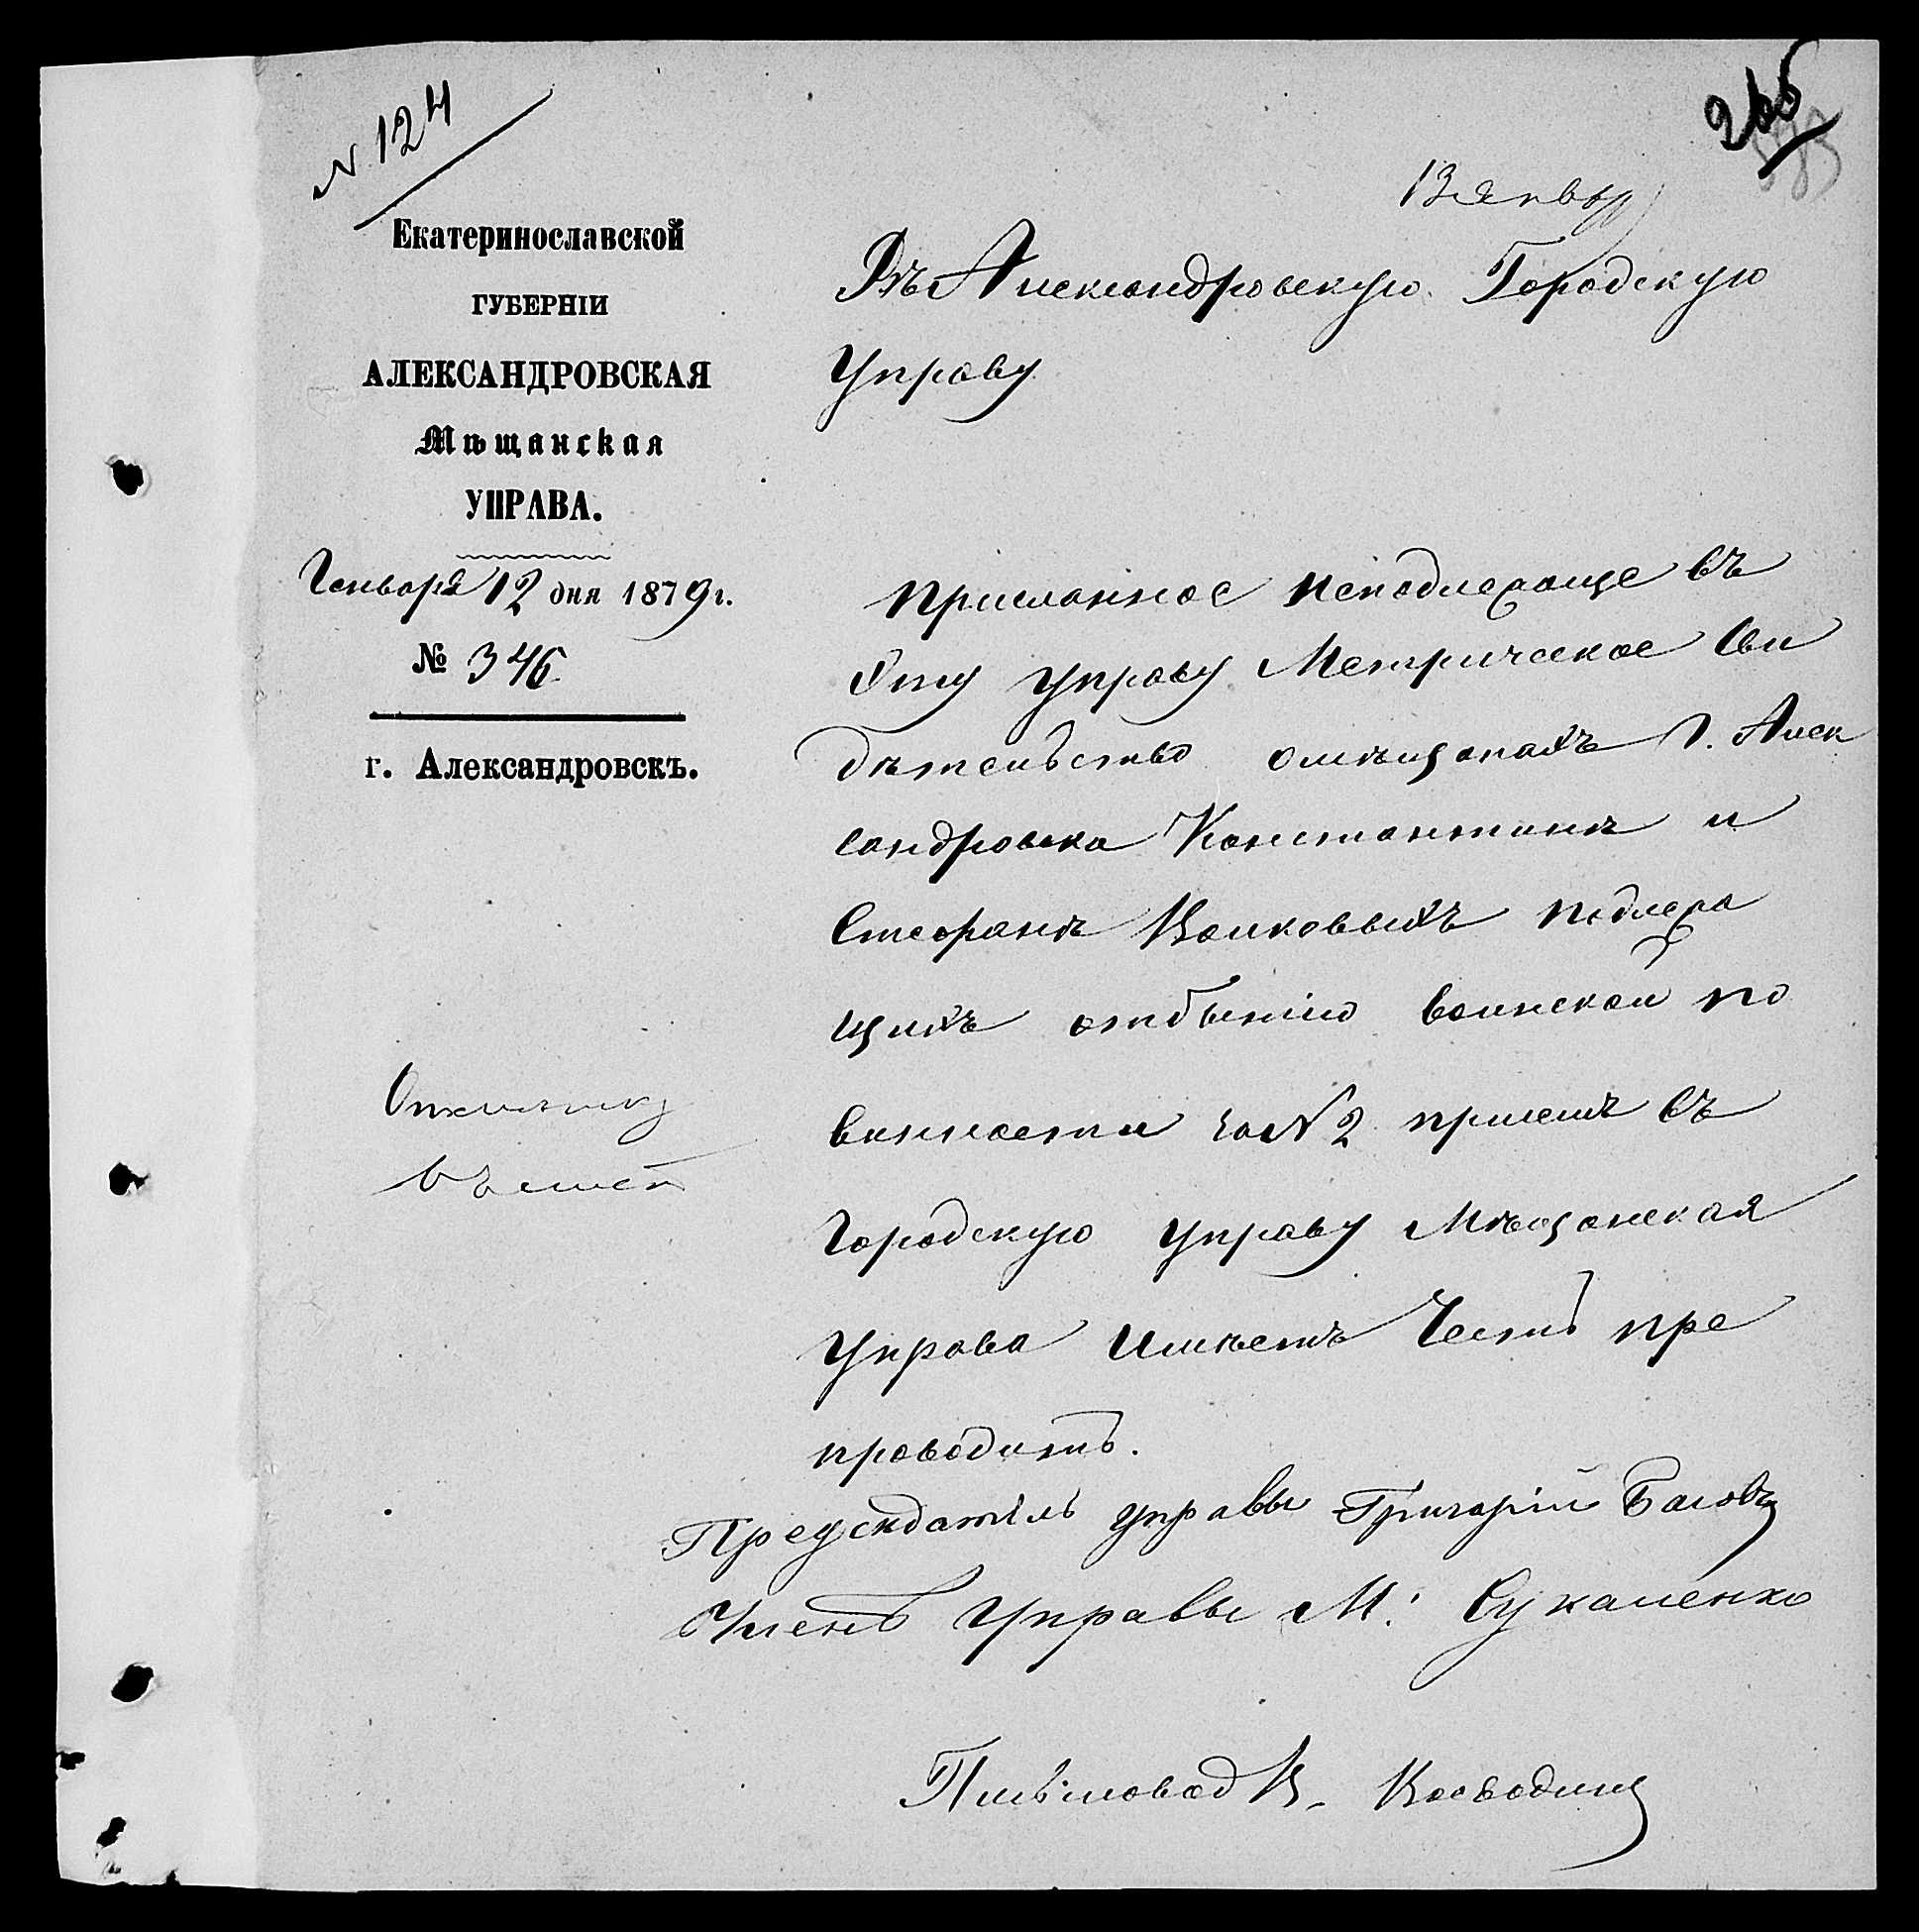 N. 124
266
13 январ
Екатеринославской
ГУБЕРНІИ
АЛЕКСАНДРОВСКАЯ
Мѣщанская
УПРАВА.
Генваря 12 дня 1879 г.
№ 346
г. Александровскъ.
Въ Александровскую Городскую
Управу
Присланное неподлежаще въ
Эту управу Метрическое Сви
дѣтельство омѣщанахъ Г. Алек
сандровска Константинѣ и
Стефанѣ Волковыхъ подлежа
щихъ отбытію воинской по
винности за N 2 приемъ въ
Городскую управу Мѣщанская
Управа Имѣетъ Честь пре
проводить.
Предсѣдатель управы Григорій
Членъ Управы М. Сукаленко
Письмовод В. Воеводинъ